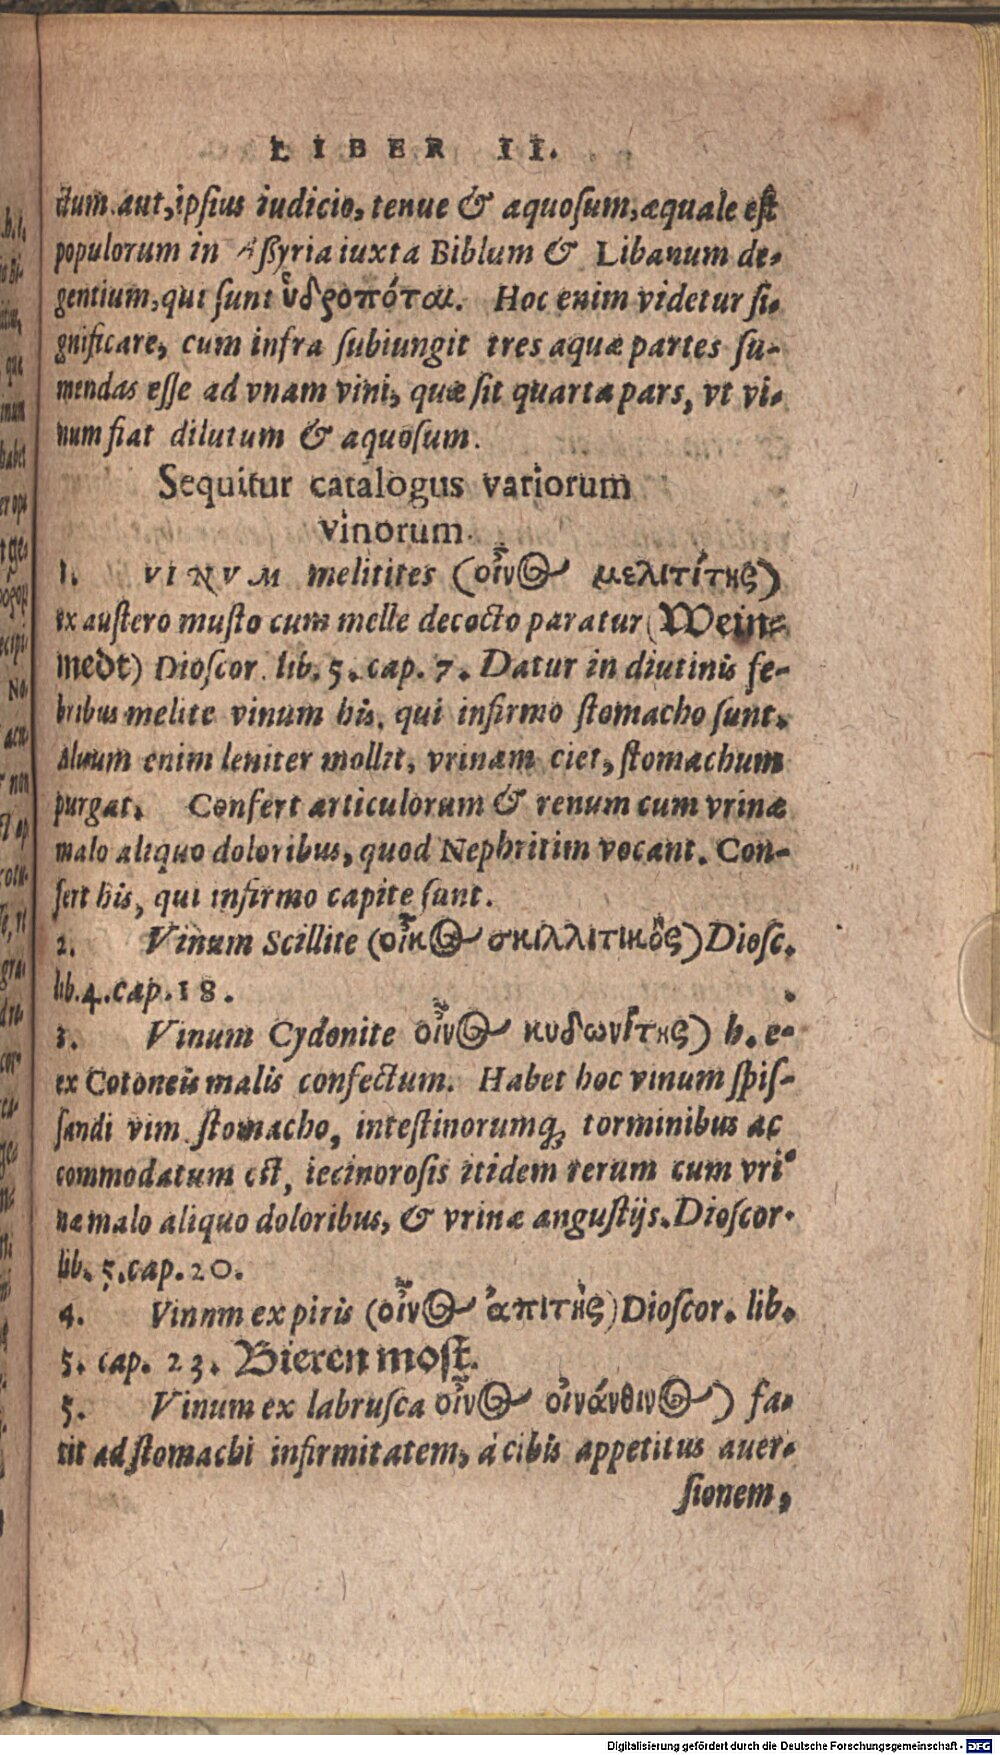 LIBER II.
ctum aut, ipsius iudicio, tenue & aquosum, æquale est
populorum in Assyria iuxta Biblum & Libanum de-
gentium, qui sunt ὑδροπόται. Hoc enim videtur si-
gnificare, cum infra subiungit tres aquæ partes su-
mendas esse ad vnam vini, quæ sit quarta pars, vt vi-
num fiat dilutum & aquosum.
Sequitur catalogus variorum
vinorum.
1. VINVM melitites (οἶνος μελιτίτης)
ex austero musto cum melle decocto paratur (Wein=
medt) Dioscor. lib. 5. cap. 7. Datur in diutinis fe-
bribus melite vinum his, qui infirmo stomacho sunt.
Aluum enim leniter mollit, vrinam ciet, stomachum
purgat. Confert articulorum & renum cum vrinæ
malo aliquo doloribus, quod Nephritim vocant. Con-
fert his, qui infirmo capite sunt.
2. Vinum Scillite (οἶκος σκιλλιτικὸς) Diosc.
lib. 4. cap. 18.
3. Vinum Cydonite οἶνος κυδωνίτης) h. e.
ex Cotoneis malis confectum. Habet hoc vinum spis-
sandi vim stomacho, intestinorumq; torminibus ac
commodatum est, iecinorosis itidem rerum cum vri-
næ malo aliquo doloribus, & vrinæ angustijs. Dioscor.
lib. 5. cap. 20.
4. Vinnm ex piris (οἶνος ἀπιτὴς) Dioscor. lib.
5. cap. 23. Bieren most.
5. Vinum ex labrusca οἶνος οἰνάνθινος) fa-
tit ad stomachi infirmitatem, à cibis appetitus auer-
sionem,
Digitalisierung gefördert durch die Deutsche Forschungsgemeinschaft - DFG